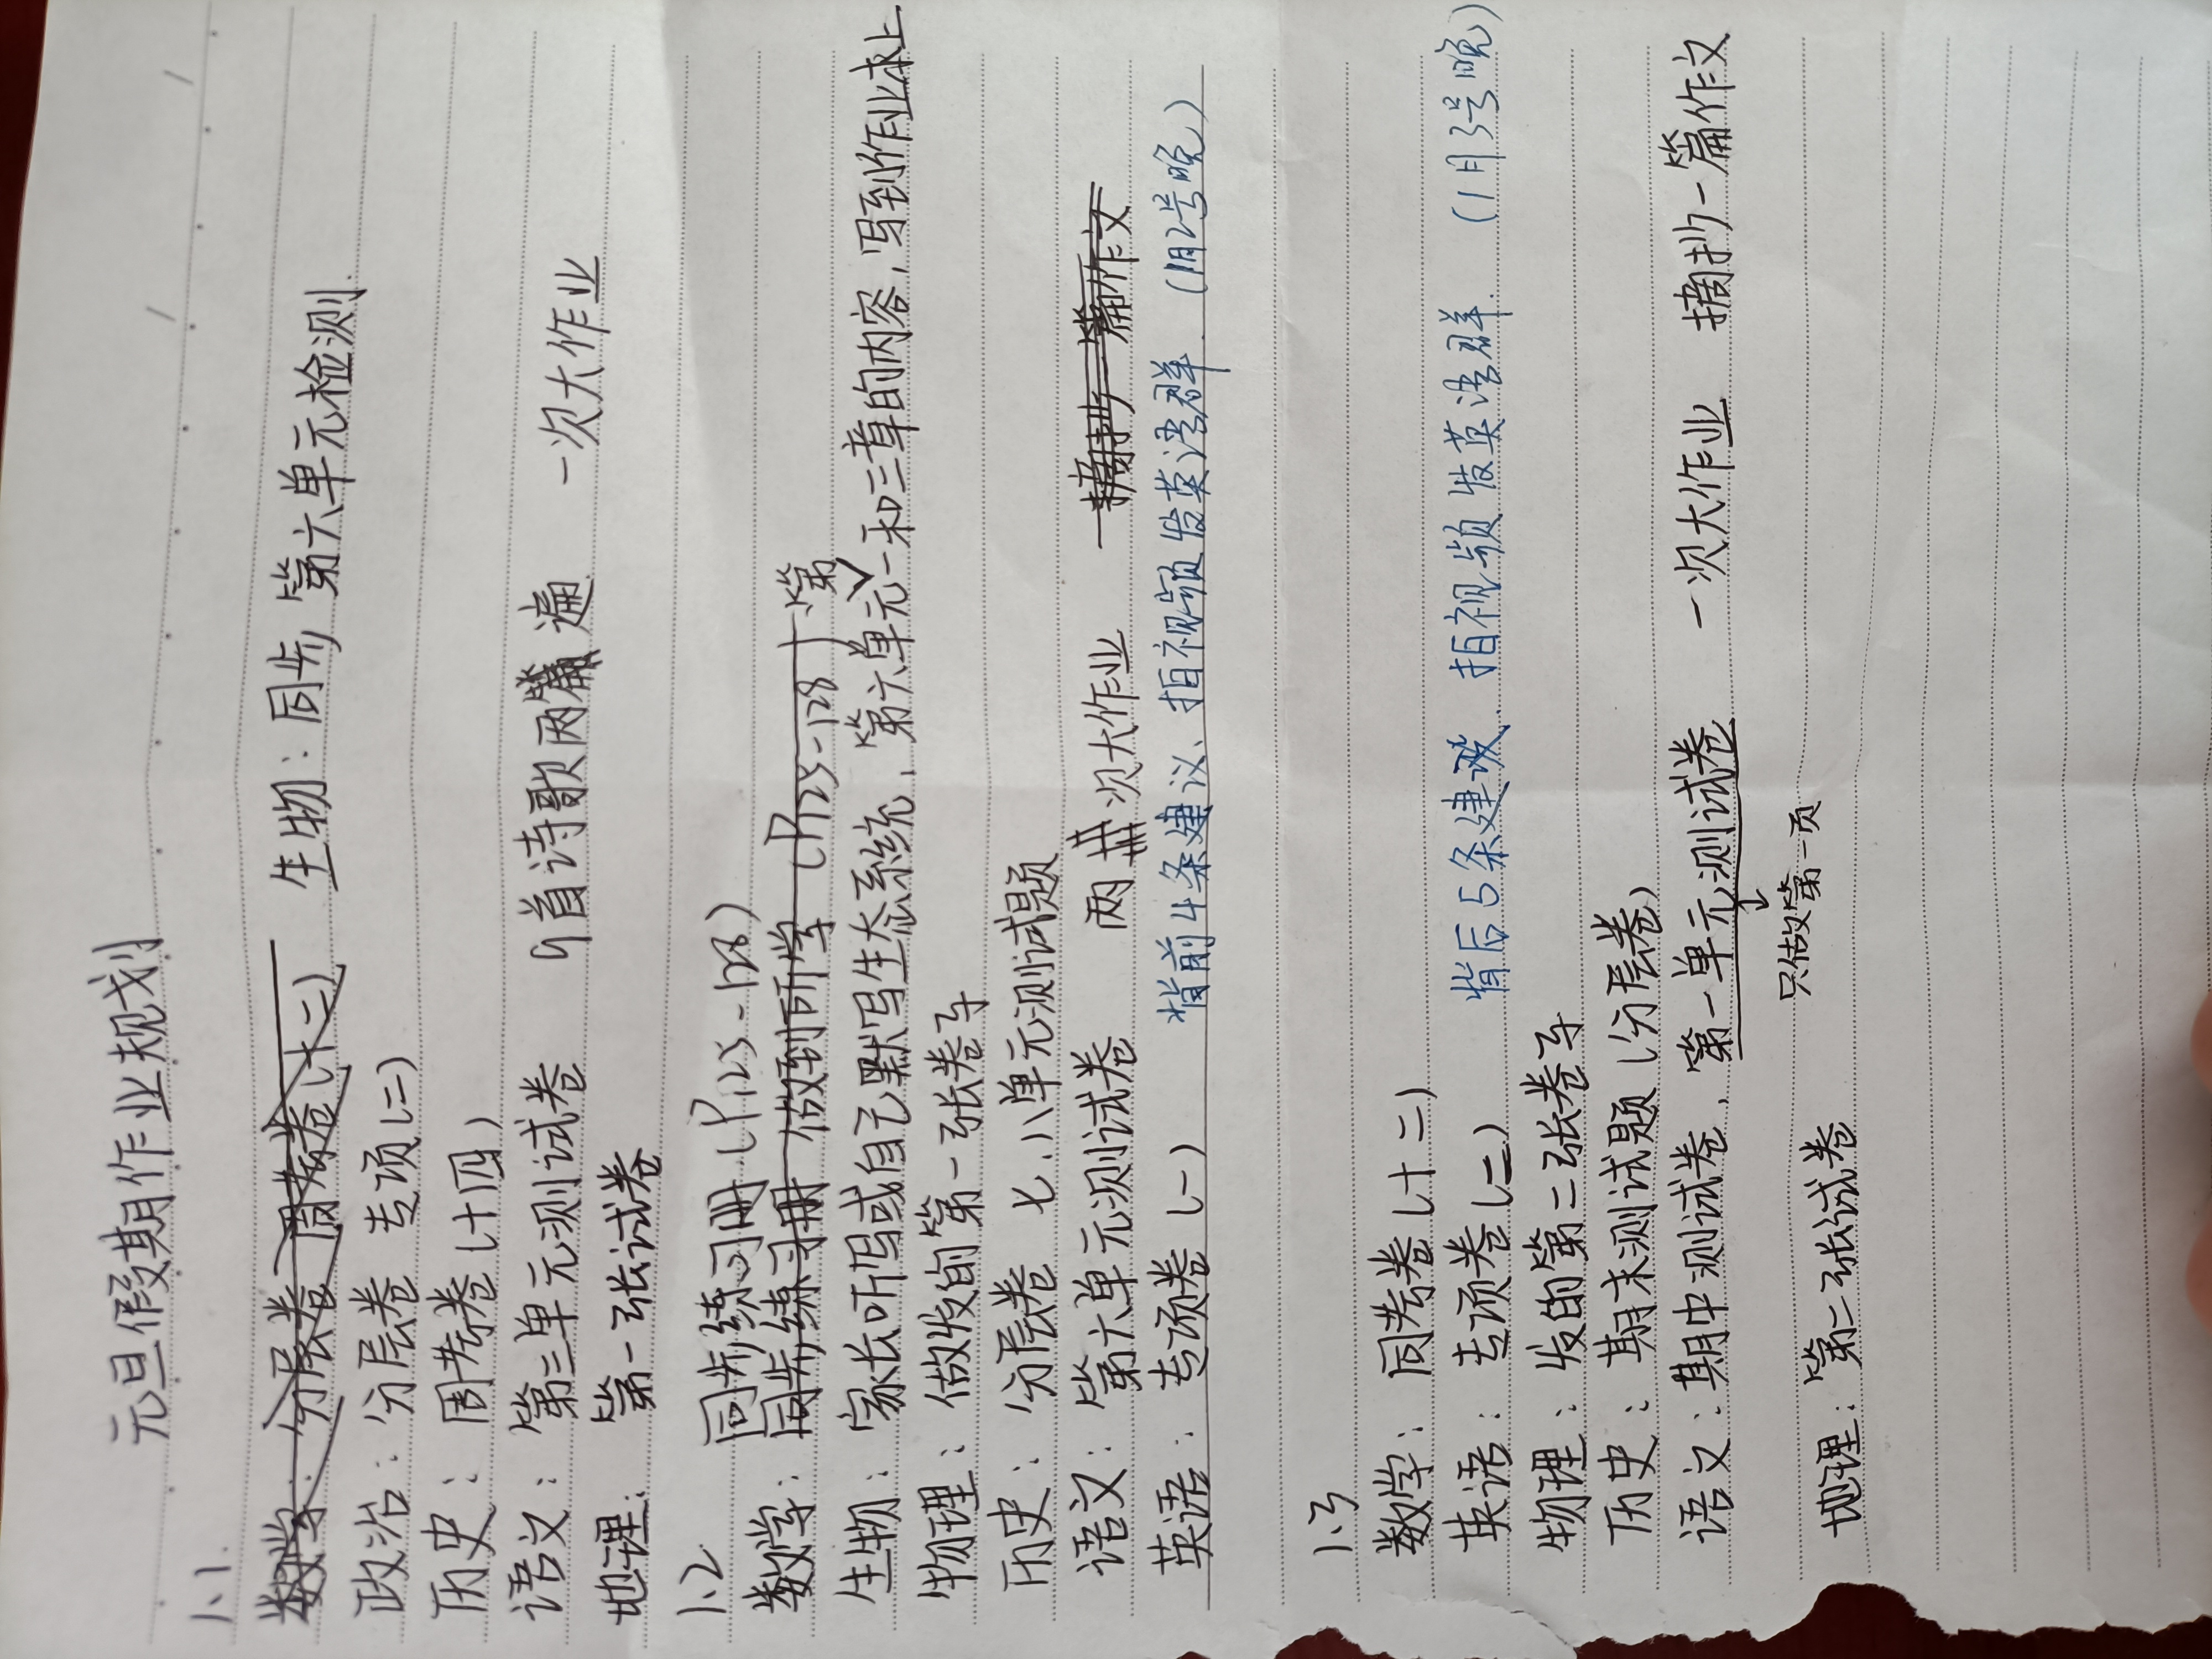 元旦假期作业规划
1.1.
数学：分层卷 周考卷(十二) 生物：同步 第六单元检测.
政治：分层卷 专项(二)
历史：周考卷(十四)
语文：第三单元测试卷 9首诗歌两篇遍 一次大作业
地理：第一张试卷
1.2 同步练习册(P125-128)
数学：同步练习册 做到所学(P125-128) 第
生物：家长听写或自己默写生态系统、第六单元一和三章的内容,写到作业本上
物理：做发的第一张卷子
历史：分层卷 七、八单元测试题
语文：第六单元测试卷 两 次大作业 摘抄一篇作文
英语：专项卷(一) 背前4条建议、拍视频发英语群.(1月2号晚)
1.3
数学：周考卷(十二)
英语：专项卷(二) 背后5条建议、拍视频发英语群.(1月3号晚)
物理：发的第二张卷子
历史：期末测试题(分层卷)
语文：期中测试卷、第一单元测试卷 一次大作业 摘抄一篇作文
只做第一页
地理：第二张试卷